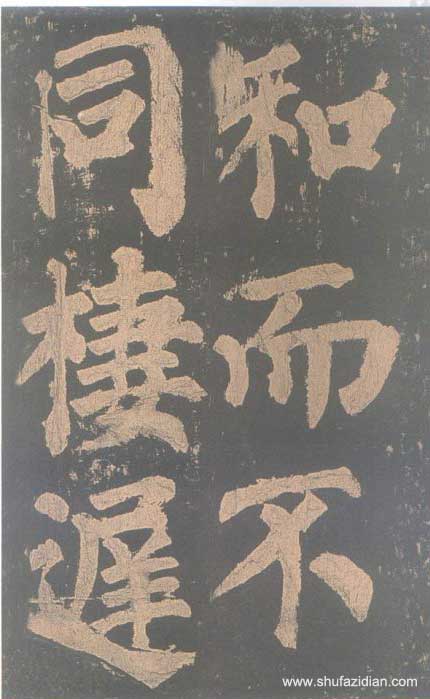 和而不
同棲遲
www.shufazidian.com